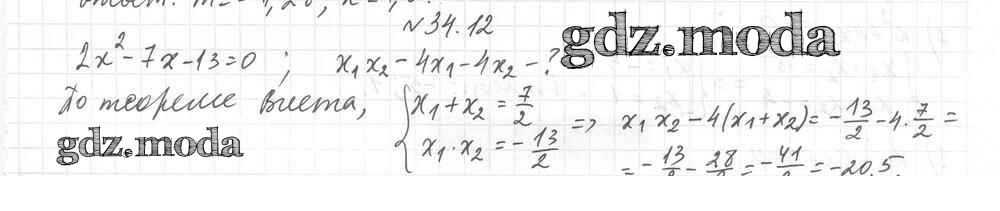 №34.12
gdz.moda
2x² - 7x - 13 = 0 ; x₁x₂ - 4x₁ - 4x₂ - ?
По теореме Виета, { x₁ + x₂ = 7/2
x₁ · x₂ = -13/2 => x₁x₂ - 4(x₁ + x₂) = -13/2 - 4 · 7/2 =
gdz.moda
= -13/2 - 28/2 = -41/2 = -20,5.